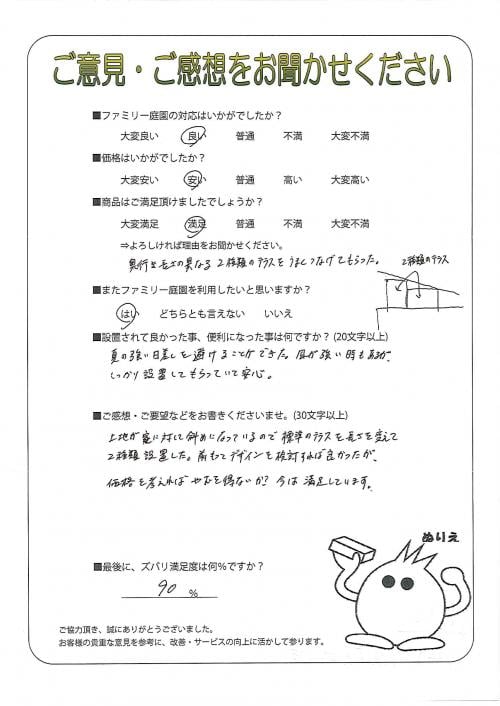 ご意見・ご感想をお聞かせください
■ファミリー庭園の対応はいかがでしたか?
大変良い 良い 普通 不満 大変不満
■価格はいかがでしたか?
大変安い 安い 普通 高い 大変高い
■商品はご満足頂けましたでしょうか?
大変満足 満足 普通 不満 大変不満
⇒よろしければ理由をお聞かせください。
奥行と長さの異なる2種類のテラスをうまくつなげてもらった。
2種類のテラス
■またファミリー庭園を利用したいと思いますか?
はい どちらとも言えない いいえ
■設置されて良かった事、便利になった事は何ですか? (20文字以上)
夏の強い日差しを避けることができた。風が強い時もあるが、
しっかり設置してもらっていて安心。
■ご感想・ご要望などをお書きくださいませ。(30文字以上)
土地が家に対して斜めになっているので標準のテラスを長さを変えて
2種類設置した。前もってデザインを検討すれば良かったが、
価格を考えればやむを得ないか?今は満足しています。
ぬりえ
■最後に、ズバリ満足度は何%ですか?
90 %
ご協力頂き、誠にありがとうございました。
お客様の貴重な意見を参考に、改善・サービスの向上に活かして参ります。